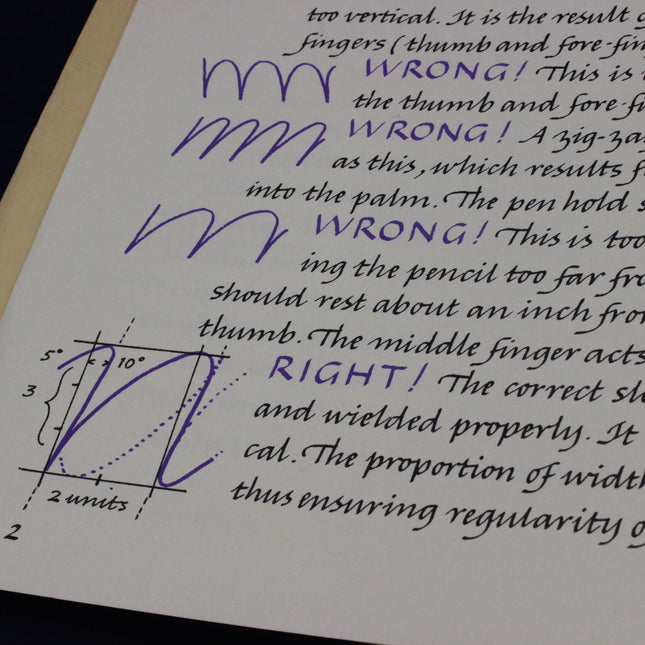 too vertical. It is the result
fingers (thumb and fore-fin
WRONG! This is
the thumb and fore-fi
WRONG! A zig-za
as this, which results f
into the palm. The pen hold s
WRONG! This is too
ing the pencil too far fro
should rest about an inch from
thumb. The middle finger acts
RIGHT! The correct sl
and wielded properly. It
cal. The proportion of width
thus ensuring regularity o
5°
10°
3
2 units
2